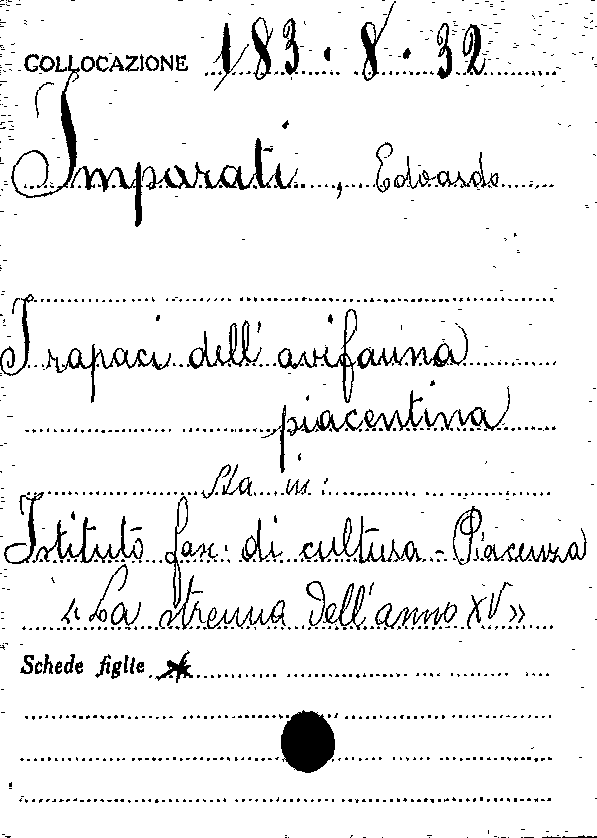 COLLOCAZIONE 183.8.32
Imparati, Edoardo
I rapaci dell'avifauna
piacentina
Sta in:
Istituto fasc. di cultura - Piacenza
"La strenna dell'anno XV»
Schede figlie *